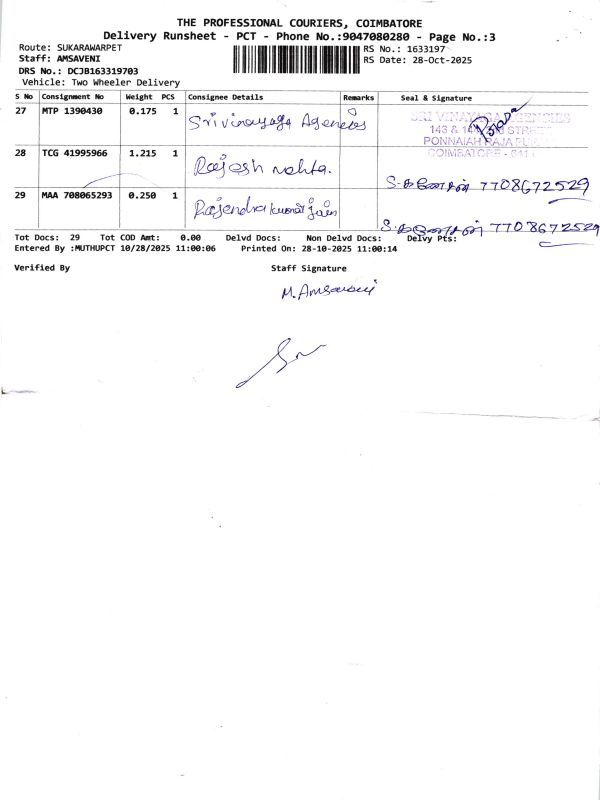 THE PROFESSIONAL COURIERS, COIMBATORE
Delivery Runsheet - PCT - Phone No.:9047080280 - Page No.:3
Route: SUKARAWARPET
RS No.: 1633197
Staff: AMSAVENI
RS Date: 28-Oct-2025
DRS No.: DCJB163319703
Vehicle: Two Wheeler Delivery
S No Consignment No Weight PCS Consignee Details Remarks Seal & Signature
27 MTP 1390430 0.175 1 Sri vinayaga Agencies
SRI VINAYAGA AGENCIES
143 & STREET
PONNAIAH RAJA
COIMBATORE - 641
28 TCG 41995966 1.215 1 Rajesh mehta.
S. கணேசன் 7708672529
29 MAA 708065293 0.250 1 Rajendra kumar jain
S. கணேசன் 7708672529
Tot Docs: 29 Tot COD Amt: 0.00 Delvd Docs: Non Delvd Docs: Delvy Pts:
Entered By :MUTHUPCT 10/28/2025 11:00:06 Printed On: 28-10-2025 11:00:14
Verified By Staff Signature
M. Amsaveni